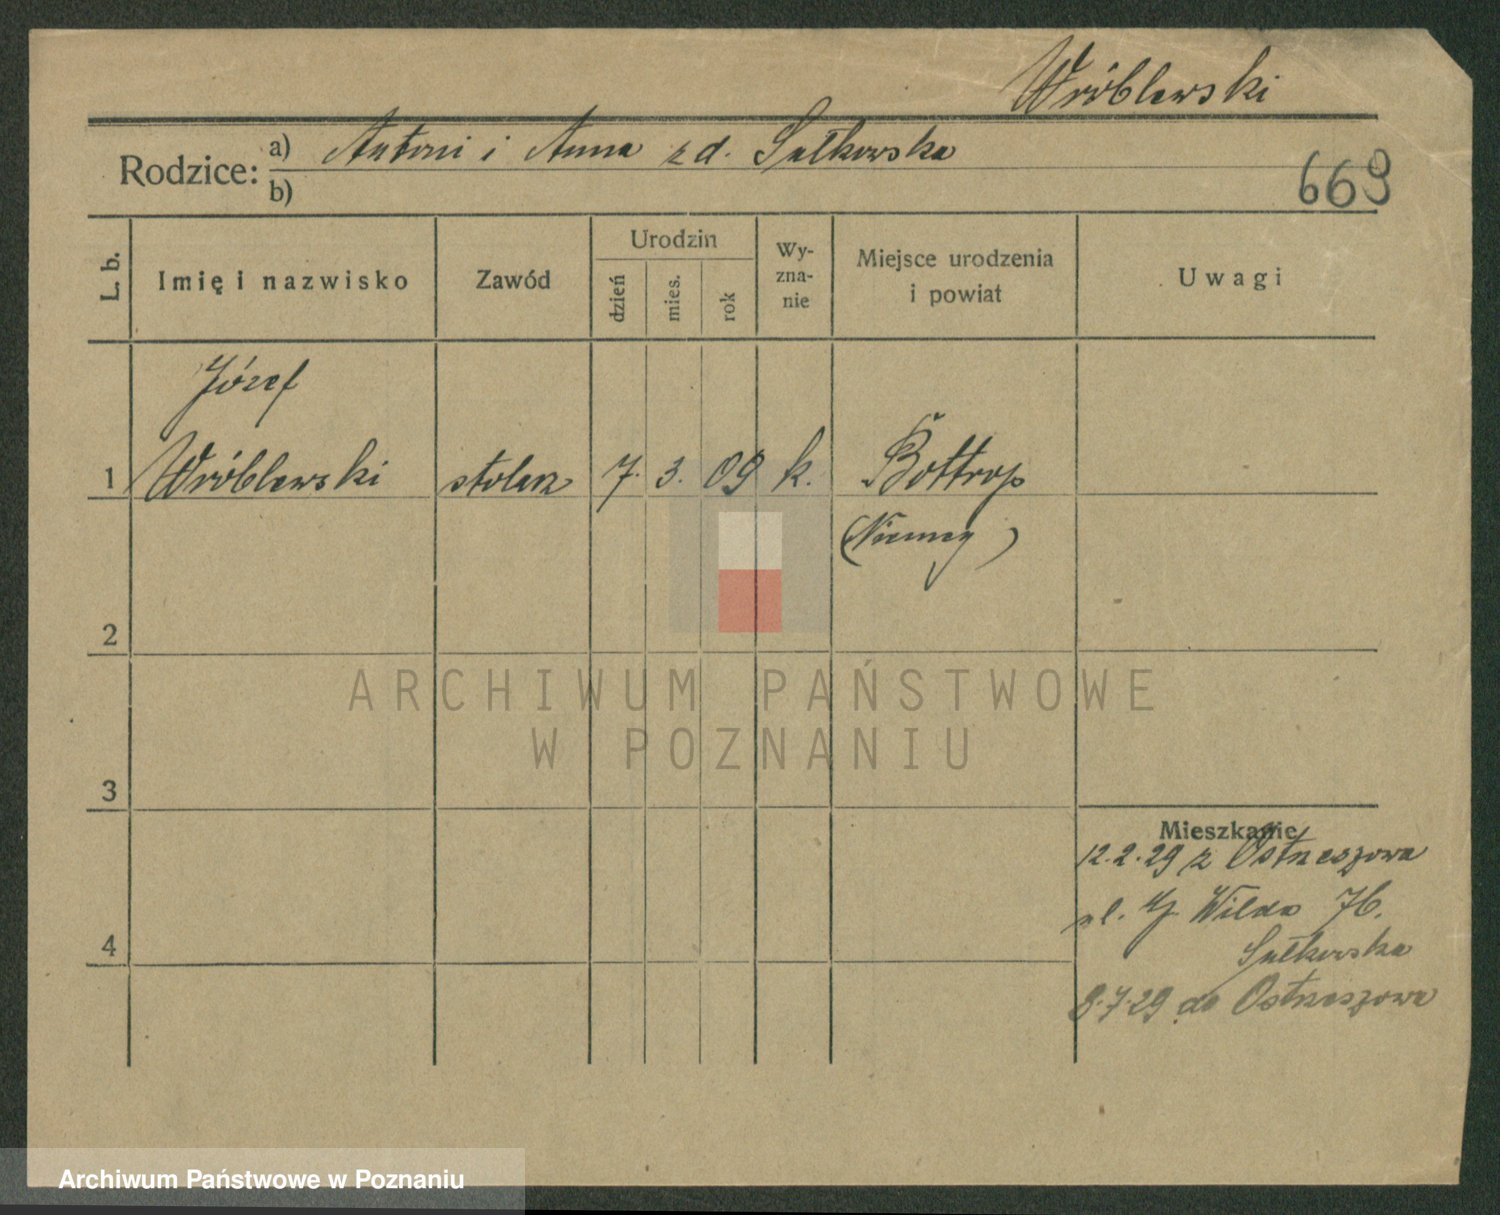 Wróblewski
Rodzice: a) Antoni i Anna z d. Sułkowska
b)
669
L. b.
Imię i nazwisko
Zawód
Urodzin
dzień
mies.
rok
Wy-
zna-
nie
Miejsce urodzenia
i powiat
Uwagi
Józef
1 Wróblewski stolarz 7. 3. 09 k. Bottrop
(Niemcy)
2
ARCHIWUM PAŃSTWOWE
W POZNANIU
3
Mieszkanie
12.2.29 z Ostrzeszowa
ul. Wilda 76.
4
Sułkowska
9.7.29 do Ostrzeszowa
Archiwum Państwowe w Poznaniu